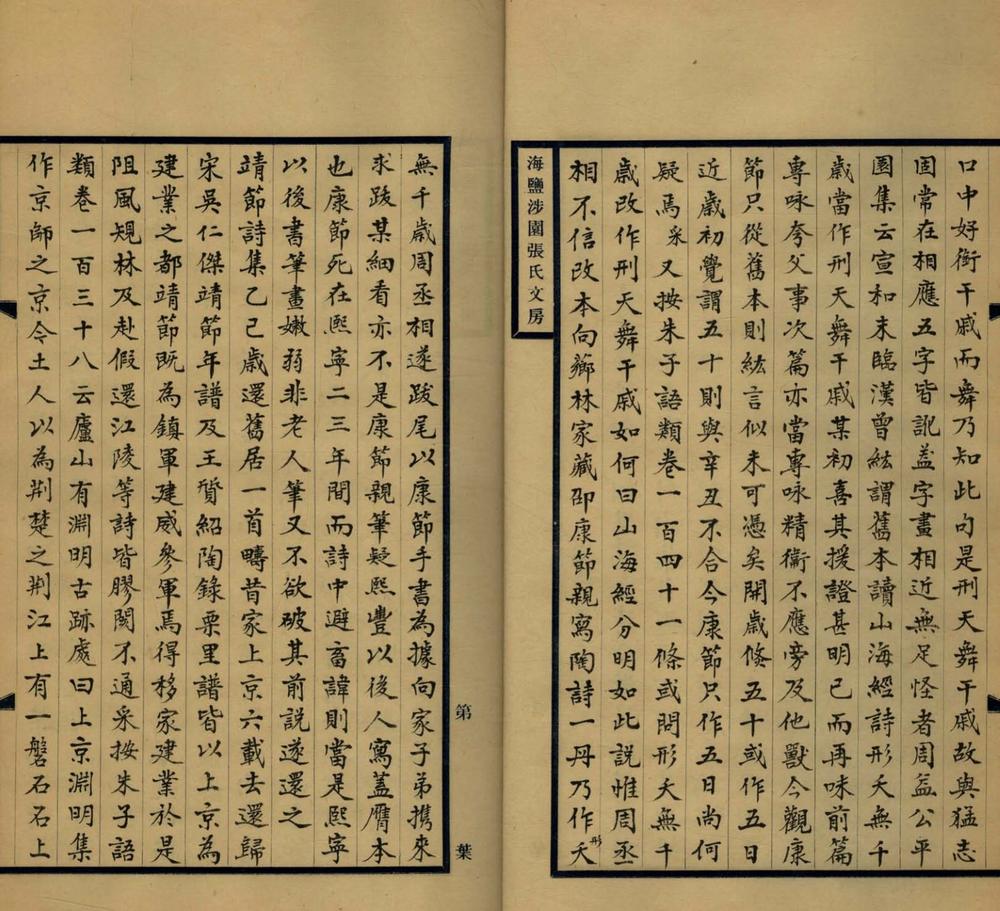 口中好銜干戚而舞乃知此句是刑天舞干戚故與猛志
固常在相應五字皆訛盖字畫相近無足怪者周益公平
園集云宣和末臨漢曾紘謂舊本讀山海經詩形夭無千
歳當作刑天舞干戚某初喜其援證甚明已而再味前篇
專咏夸父事次篇亦當專咏精衞不應旁及他獸今觀康
節只從舊本則紘言似未可憑矣開歳倏五十或作五日
近歳初覺謂五十則與辛丑不合今康節只作五日尚何
疑焉采又按朱子語類卷一百四十一條或問形夭無千
歳改作刑天舞干戚如何曰山海經分明如此說惟周丞
相不信改本向薌林家藏邵康節親寫陶詩一冊乃作形夭
海鹽涉園張氏文房
無千歳周丞相遂跋尾以康節手書為據向家子弟携來
求跋某細看亦不是康節親筆疑熙豐以後人寫盖贋本
也康節死在熙寧二三年間而詩中避畜諱則當是熙寧
以後書筆畫嫩弱非老人筆又不欲破其前説遂還之
靖節詩集乙己歳還舊居一首疇昔家上京六載去還歸
宋吳仁傑靖節年譜及王質紹陶錄栗里譜皆以上京為
建業之都靖節既為鎮軍建威參軍焉得移家建業於是
阻風規林及赴假還江陵等詩皆膠閡不通采按朱子語
類卷一百三十八云廬山有淵明古跡處曰上京淵明集
作京師之京今土人以為荆楚之荆江上有一磐石石上
第
葉